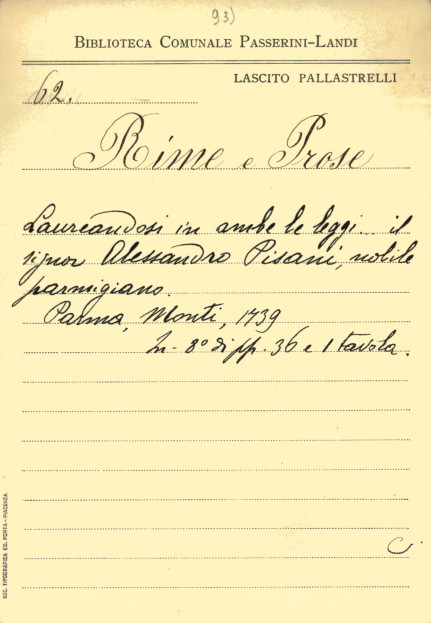 93)
BIBLIOTECA COMUNALE PASSERINI-LANDI
LASCITO PALLASTRELLI
62.
Rime e Prose
Laureandosi in ambe le leggi... il
signor Alessandro Pisani, nobile
parmigiano.
Parma, Monti, 1739
In-8º di pp. 36 e 1 tavola.
C
SOC. TIPOGRAFICA ED. PORTA-PIACENZA